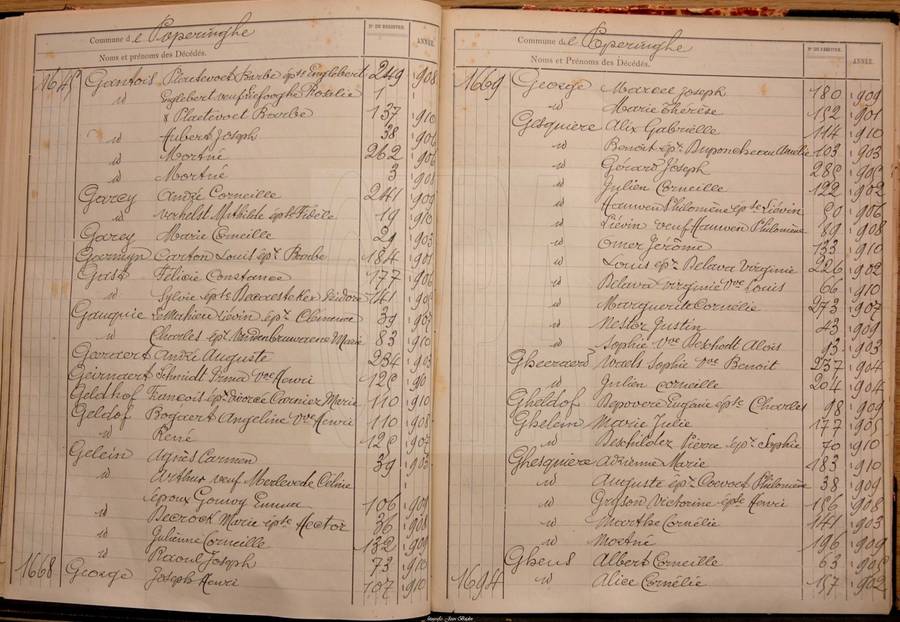 Commune de Poperinghe
N° DU REGISTRE.
ANNÉE.
Noms et prénoms des Décédés.
1645 Gantois Plaetevoet Barbe épse Englebert 249 908
id Englebert veuf Rosalie 1
& Plaetevoet Barbe 137 910
id Hubert Joseph 38 901
id Mortné 262 906
id Mortné 3 908
Garey André Corneille 241 909
id Verhelst Mathilde épse Fidèle 19 910
Garey Marie Corneille 29 903
Garmyn Carton Louis épx Barbe 184 901
Gast Félicie Constance 177 906
id Sylvie épse Isidore 141
Gauquie Mathieu Liévin épx Clémence 39 907
id Charles épx Vandenbruwaene Marie 83 910
Geeraert André Auguste 234 903
Geirnaert Schmidt Irma Vve Henri
Geldhof François épx divorcé Carnier Marie 110 910
Geldof Bogaert Angeline Vve Henri 110 908
id René 907
Gelein Agnès Carmen 39
id Arthur veuf Merlevede Céline
époux Gouwy Emma 106 909
id Decrock Marie épse Hector 36 908
id Julienne Corneille 132 909
id Raoul Joseph 73 910
1668 George Joseph Henri 107 910
Commune de Poperinghe
N° DU REGISTRE.
ANNÉE.
Noms et Prénoms des Décédés.
1669 George Marcel Joseph 180 909
id Marie Thérèse 152 901
Gesquiere Alix Gabrielle 114 910
id Benoit épx Duponcheau Amélie 103 903
id Gérard Joseph
id Julien Corneille 122 902
id Hauwen Philomène épse Liévin 50 906
id Liévin veuf Hauwen Philomène 89 908
id Omer Jérôme 133 910
id Louis épx Delava Virginie 226 902
id Delava Virginie Vve Louis 66 910
id Marguerite Cornélie 273 907
id Nestor Justin 43 909
id Sophie Vve Deschodt Aloïs 93 903
Gheeraerd Voaels Sophie Vve Benoit 237 904
id Julien Corneille 204 904
Gheldof Depovere Eugénie épse Charles 98 909
Ghelein Marie Julie 177 905
id Deschildez Pierre épx Sophie 70 910
Ghesquiere Adrienne Marie 183 910
id Auguste épx Coevoet Philomène 38 909
id Gryson Victorine épse Henri 156 908
id Marthe Cornélie 141 903
id Mortné 196 909
Gheus Albert Corneille 63
1694 id Alice Cornélie 157 902